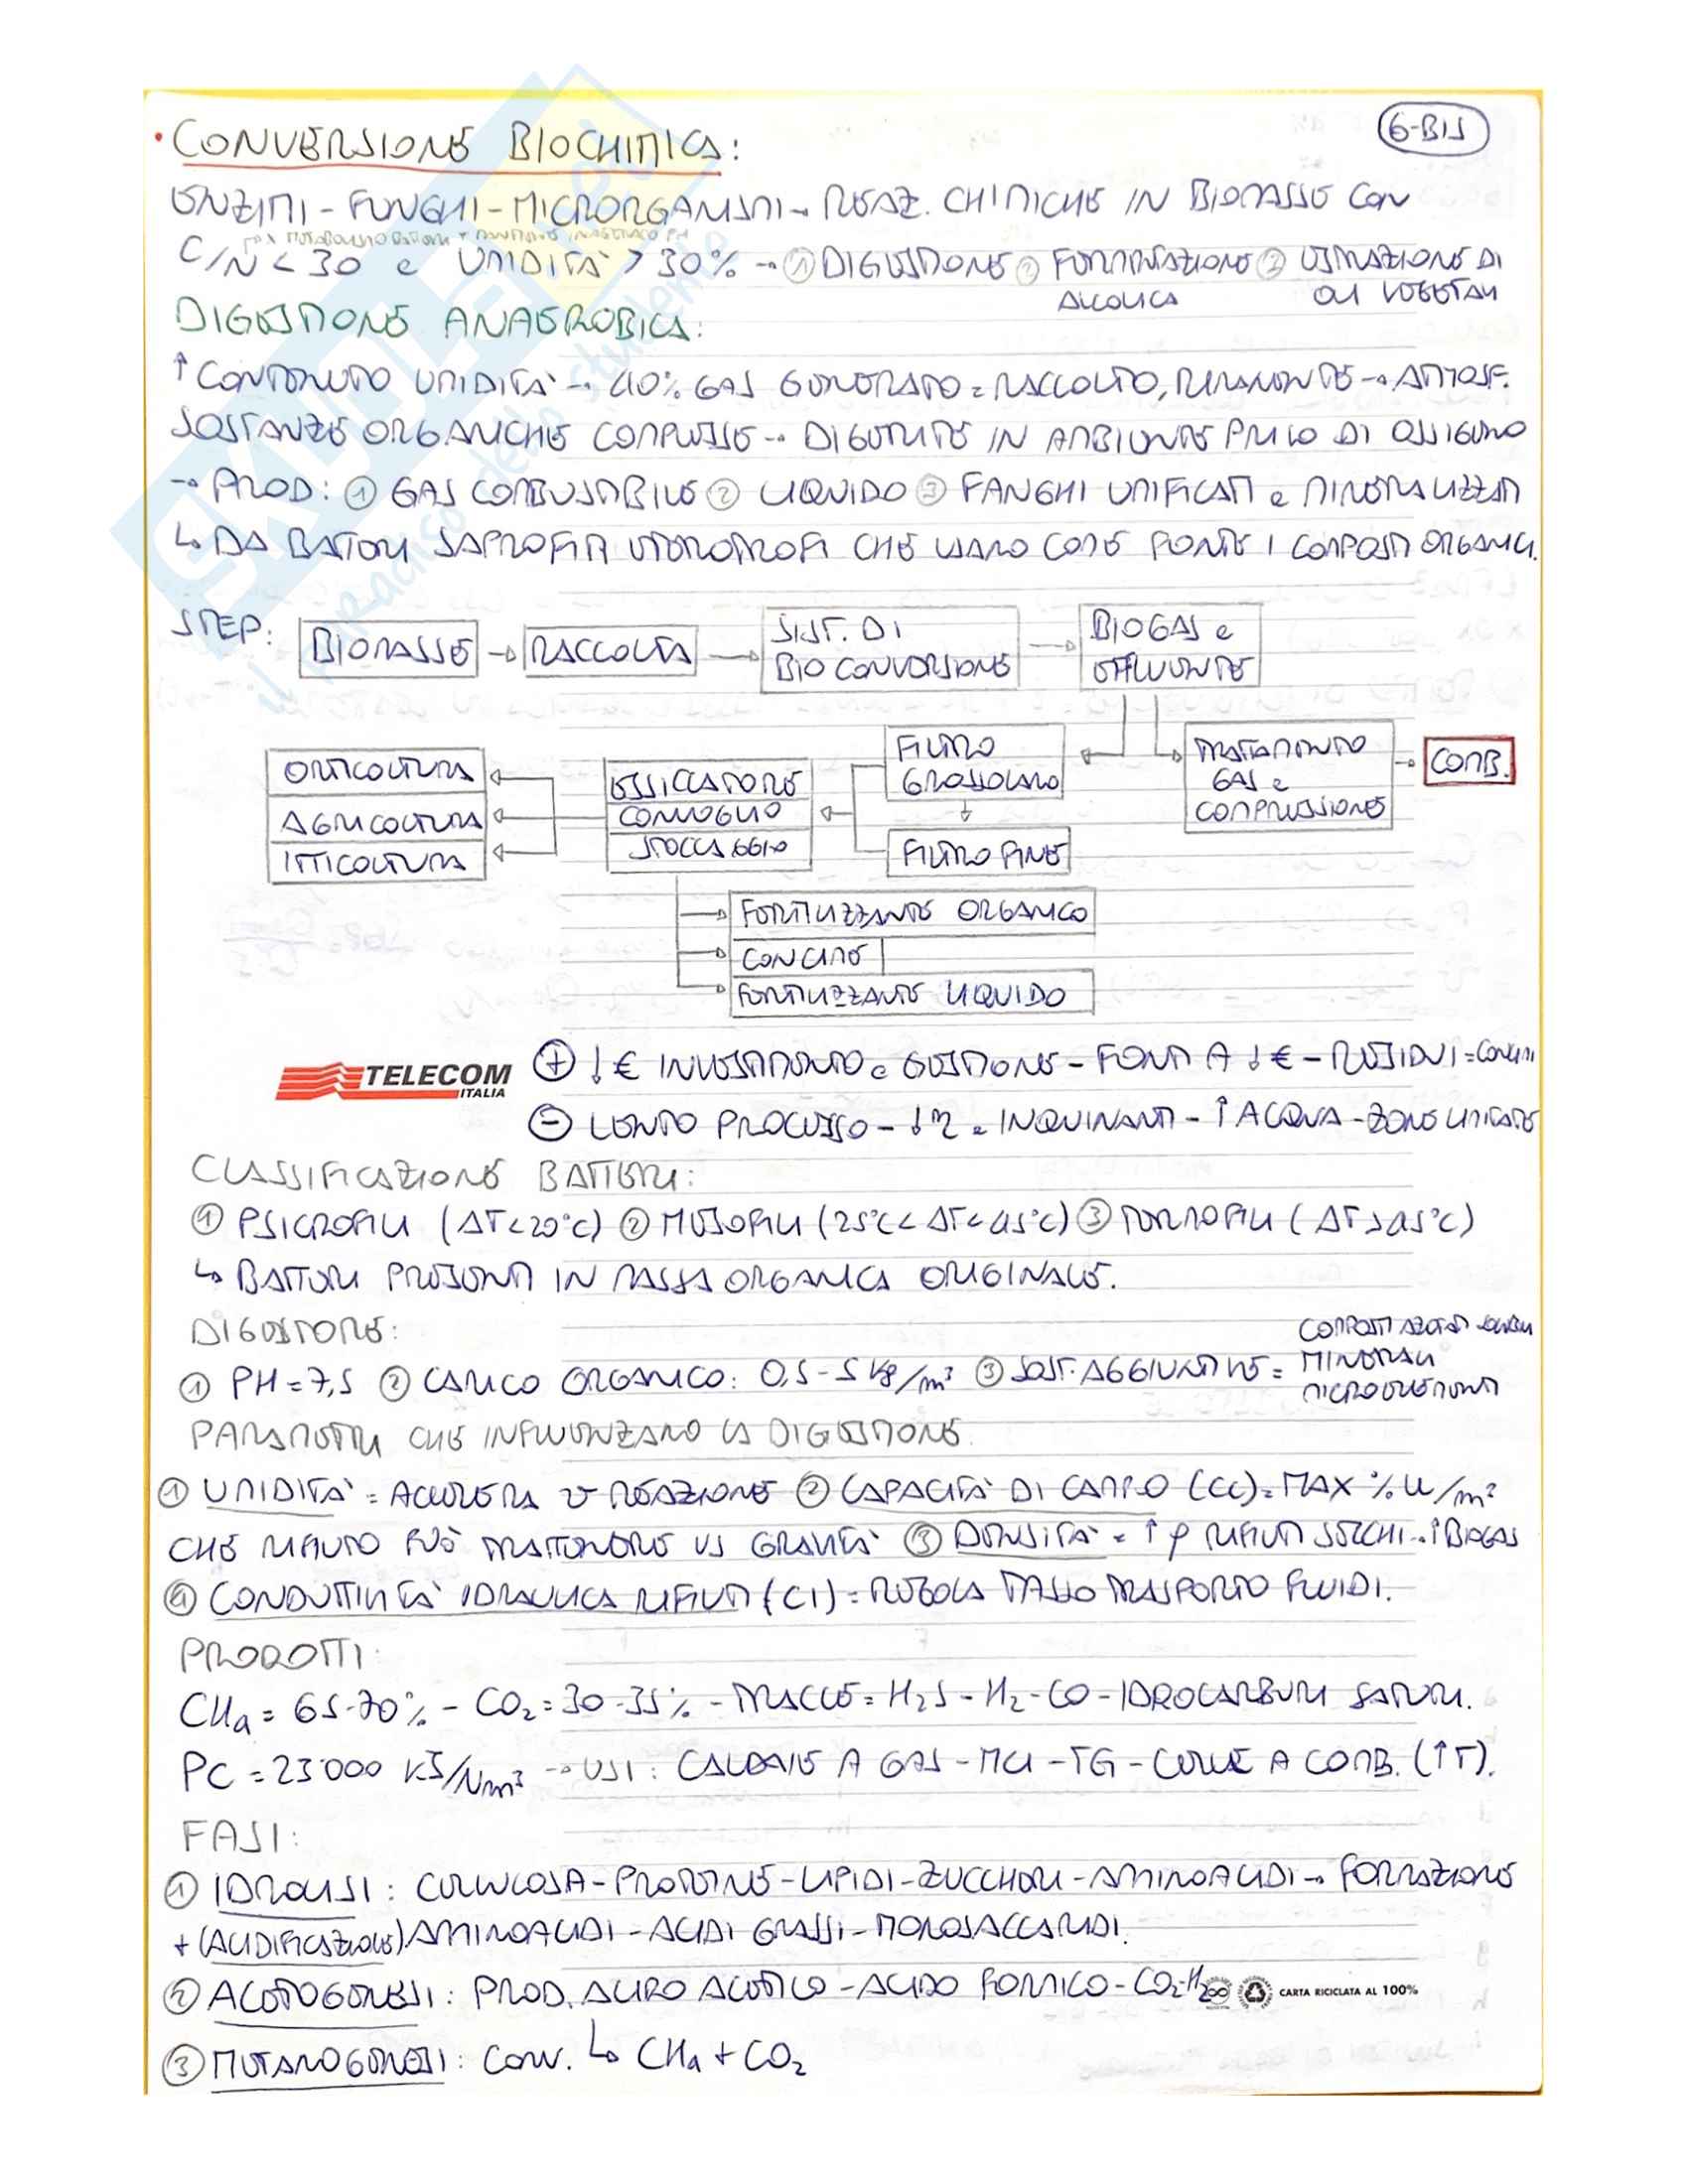 6-BIS
• CONVERSIONE BIOCHIMICA:
ENZIMI - FUNGHI - MICRORGANISMI → REAZ. CHIMICHE IN BIOMASSE CON
C/N < 30 e UMIDITÀ > 30% → ① DIGESTIONE ② FERMENTAZIONE ALCOLICA ③ ESTRAZIONE DI OLI VEGETALI
DIGESTIONE ANAEROBICA:
↑ CONTENUTO UMIDITÀ → 40% GAS GENERATO = RACCOLTO, RIMANENTE → ATMOSF.
SOSTANZE ORGANICHE COMPLESSE → DIGERITE IN AMBIENTE PRIVO DI OSSIGENO
→ PROD: ① GAS COMBUSTIBILE ② LIQUIDO ③ FANGHI UMIFICATI e MINERALIZZATI
↳ DA BATTERI SAPROFITI ETEROTROFI CHE USANO COME FONTE I COMPOSTI ORGANICI.
STEP:
BIOMASSE → RACCOLTA → SIST. DI BIOCONVERSIONE → BIOGAS e EFFLUENTE
FILTRO GROSSOLANO
TRATTAMENTO GAS e COMPRESSIONE → COMB.
FILTRO FINE
ESSICCATORE
CONVOGLIO
STOCCAGGIO
ORTICOLTURA
AGRICOLTURA
ITTICOLTURA
FERTILIZZANTE ORGANICO
CONCIME
FERTILIZZANTE LIQUIDO
TELECOM
ITALIA
⊕ ↓ € INVESTIMENTO e GESTIONE - FONTI A ↓ € - RESIDUI = CONCIMI
⊖ LENTO PROCESSO - ↓ η - INQUINANTI - ↑ ACQUA - ZONE LIMITATE
CLASSIFICAZIONE BATTERI:
① PSICROFILI (ΔT < 20°C) ② MESOFILI (25°C < ΔT < 45°C) ③ TERMOFILI (ΔT > 45°C)
↳ BATTERI PRESENTI IN MASSA ORGANICA ORIGINALE.
DIGESTORE:
① PH = 7,5 ② CARICO ORGANICO: 0,5 - 5 kg/m³ ③ SOST. AGGIUNTIVE = COMPOSTI AZOTATI MINERALI MICROELEMENTI
PARAMETRI CHE INFLUENZANO LA DIGESTIONE.
① UMIDITÀ = ACCELERA v REAZIONE ② CAPACITÀ DI CAMPO (CC) = MAX % U/m²
CHE RIFIUTO PUÒ TRATTENERE VS GRAVITÀ ③ DENSITÀ = ↑ ρ RIFIUTI SECCHI → ↑ BIOGAS
④ CONDUTTIVITÀ IDRAULICA RIFIUTI (CI) = REGOLA TASSO TRASPORTO FLUIDI.
PRODOTTI:
CH₄ = 65-70% - CO₂ = 30-35% - TRACCE = H₂S - H₂ - CO - IDROCARBURI SATURI.
PC = 23'000 kJ/Nm³ → USI: CALDAIE A GAS - MCI - TG - CELLE A COMB. (↑T).
FASI:
① IDROLISI: CELLULOSA - PROTEINE - LIPIDI - ZUCCHERI - AMINOACIDI → FORMAZIONE
+ (ACIDIFICAZIONE) AMINOACIDI - ACIDI GRASSI - MONOSACCARIDI.
② ACETOGENESI: PROD. ACIDO ACETICO - ACIDO FORMICO - CO₂ - H₂
CARTA RICICLATA AL 100%
③ METANOGENESI: CONV. ↳ CH₄ + CO₂